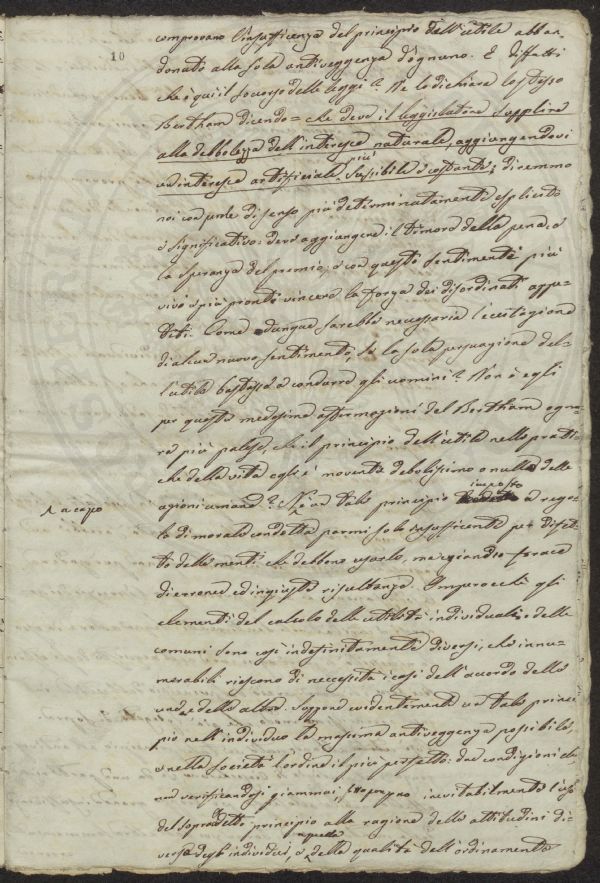 10
comprovano l'insufficienza del principio dell'utile abban-
donato alla sola antiveggenza d'ognuno. E diffatti
che è qui il socorso delle leggi? Ve lo dichiara lo stesso
Bertham dicendo = che deve il leggislatore supplire
alla debbolezza dell'interesse naturale, aggiungendovi
un interesse artifficiale più sensibile e costante; diremmo
noi con parole di senso più determinatamente esplicito
e significativo: deve aggiungere il timore della pena, o
la speranza del premio, e con questo sentimento più
vivo e più pronto vincere la forza dei disordinati appe-
titi. Come dunque sarebbe necessaria l'eccitazione
di alcun nuovo sentimento, se la sola persuasione del-
l'utile bastasse a condurre gli uomini? Non è egli
per queste medesime affermazioni del Bertham ogno-
ra più palese, che il principio dell'utile nelle prati-
che della vita egli è movente debolissimo o nullo delle
A capo
azioni umane? Nè un tale principio imposto a rego-
la di morale condotta parmi solo insufficiente per difet-
to delle menti che debbono usarlo, ma eziandio ferace
di erronee ed ingiuste risultanze. Imperocchè gli
elementi del calcolo delle utilità individuali, e delle
comuni sono così indefinitamente diversi, che innu-
merabili riescono di necessità i casi dell'accordo delle
une, e delle altre. Suppone evidentemente un tale princi-
pio nell'individuo la massima antiveggenza possibile,
e nella società l'ordine il più perfetto: due condizioni che
non verificandosi giammai, inevitabilmente l'uso
del sopradetto principio alla ragione delle attitudini di-
verse degli individui, e a quella della qualità dell'ordinamento